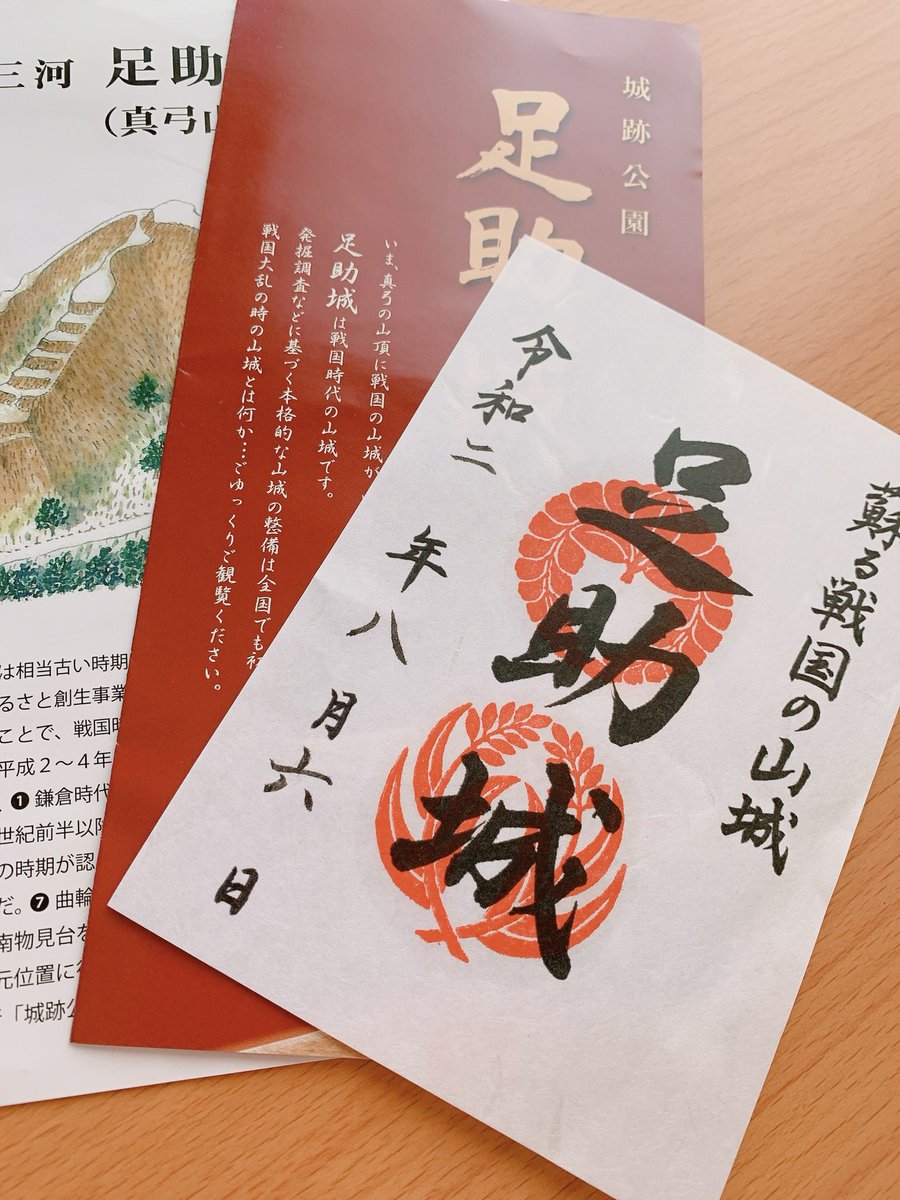 三河 足助
(真弓山
は相当古い時期
るさと創生事業
ことで、戦国時
平成2~4年
。❶鎌倉時代
世紀前半以降
の時期が認
だ。❼曲輪
南物見台を
元位置に
「城跡公
城跡公園
足助
いま、真弓の山頂に戦国の山城が
足助城は戦国時代の山城です。
発掘調査などに基づく本格的な山城の整備は全国でも初
戦国大乱の時の山城とは何か…ごゆっくりご観覧ください。
蘇る戦国の山城
足助城
令和二年八月六日